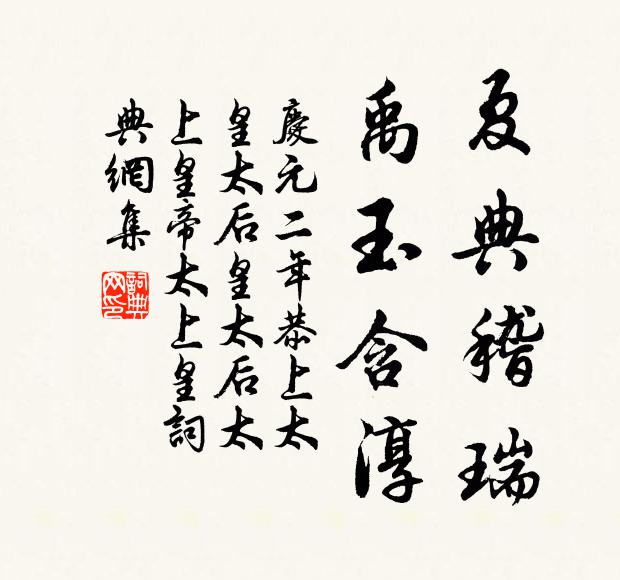 夏典稽瑞
禹玉含淳
慶元二年恭上太
皇太后皇太后太
上皇帝太上皇詞
典網集
詞典网印